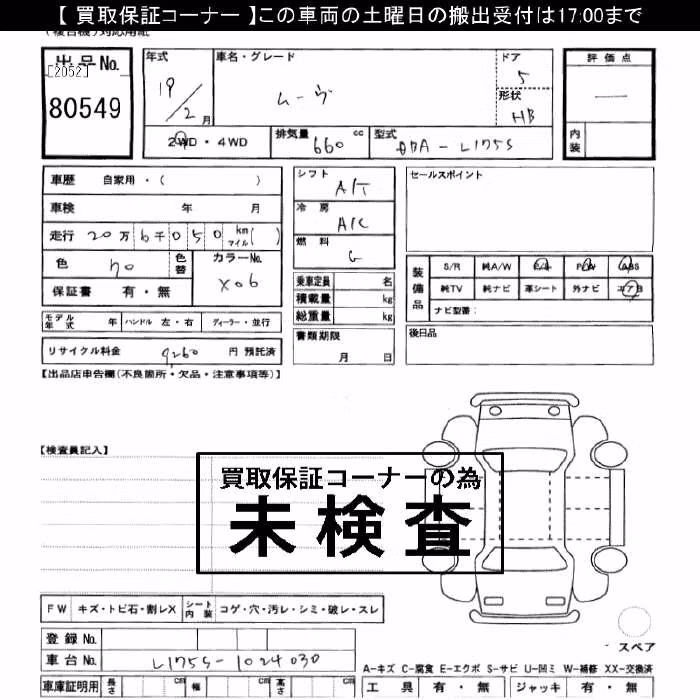 【 買取保証コーナー 】この車両の土曜日の搬出受付は17:00まで
(複合機)対応用紙
出品No.
[2052]
80549
年式
19/2月
車名・グレード
ムーヴ
ドア
5
形状
HB
評価点
―
内装
2WD・4WD
排気量
660 cc
型式
DBA-L175S
車歴 自家用・( )
車検 年 月
走行 20万6千050 kmマイル( )
色
色替
カラーNo.
X06
保証書 有・無
モデル年式 年 ハンドル 左・右 ディーラー・並行
リサイクル料金 9,260 円 預託済
シフト
A/T
冷房
A/C
燃料
G
乗車定員 名
積載量 kg
総重量 kg
書類期限
月 日
セールスポイント
装備品
S/R 純A/W P/S P/W ABS
純TV 純ナビ 革シート 外ナビ エアB
ナビ型番:
後日品
【出品店申告欄(不良箇所・欠品・注意事項等)】
【検査員記入】
買取保証コーナーの為
未検査
FW キズ・トビ石・割レX シート内装 コゲ・穴・汚レ・シミ・破レ・スレ
登録No.
車台No. L175S-1024030
車庫証明用 長さ cm 幅 cm 高さ cm
スペア
A-キズ C-腐食 E-エクボ S-サビ U-凹ミ W-補修 XX-交換済
工具 有・無 ジャッキ 有・無